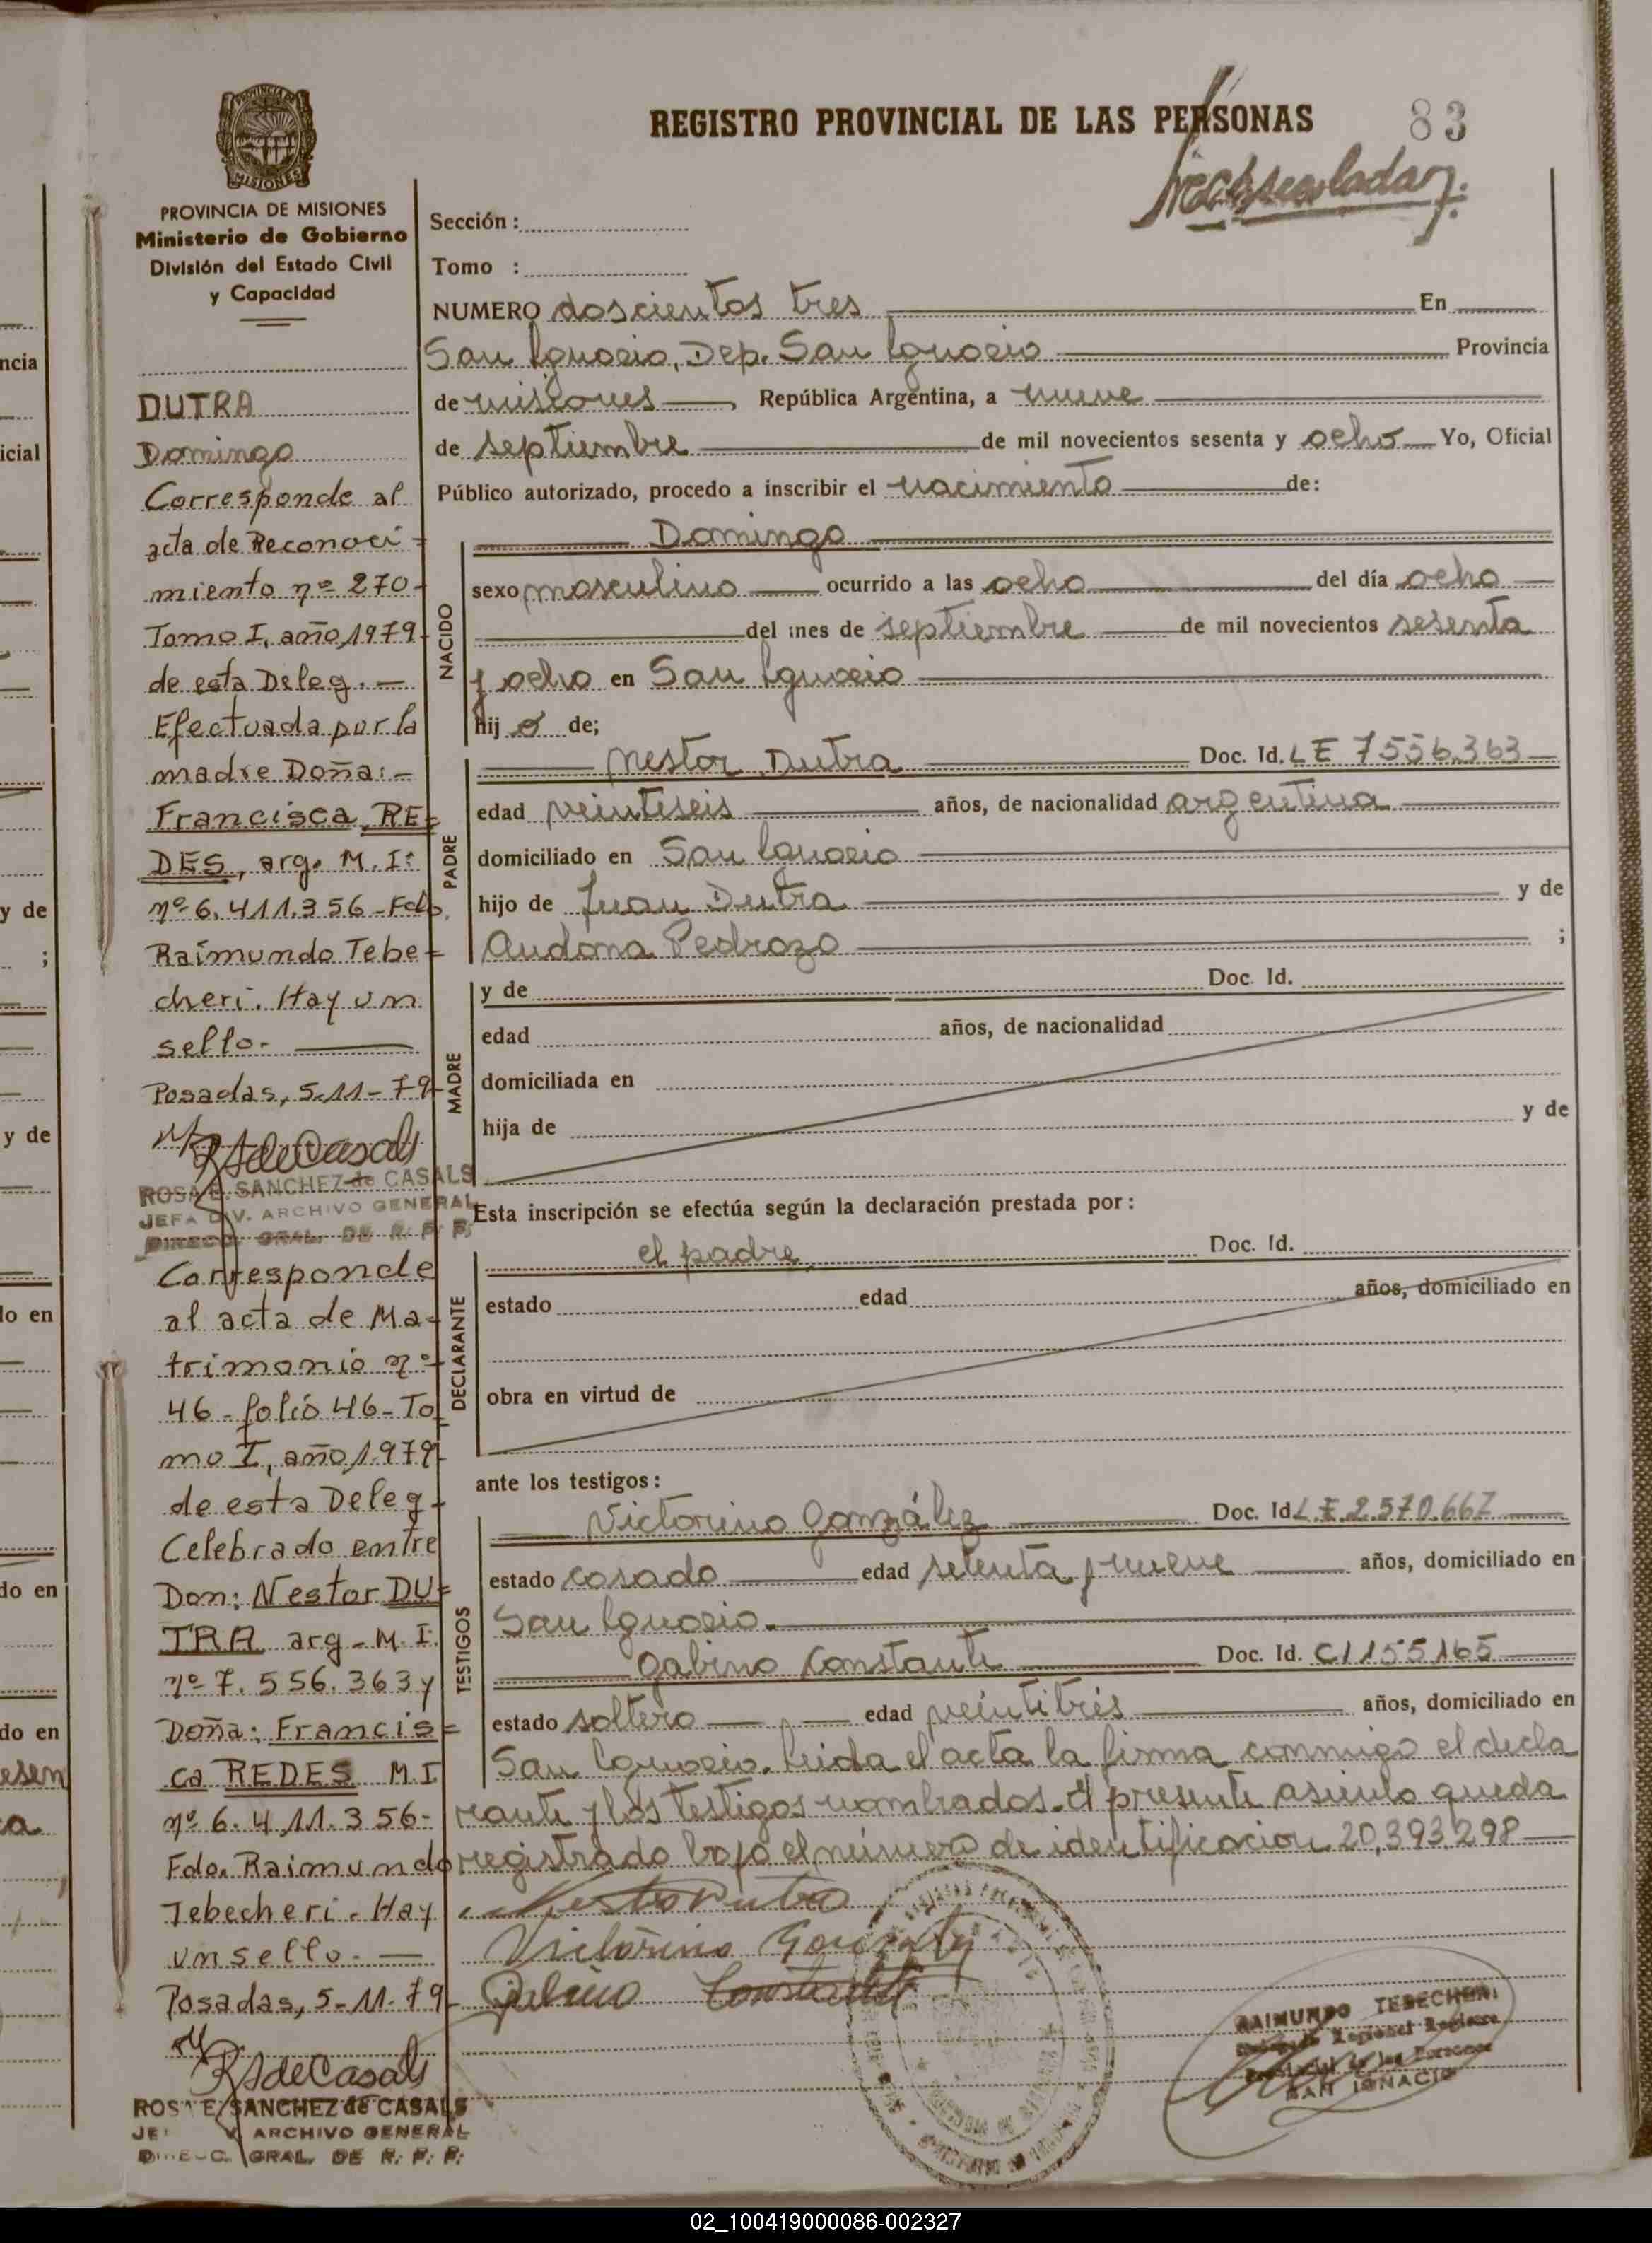 REGISTRO PROVINCIAL DE LAS PERSONAS
83
PROVINCIA DE MISIONES
Ministerio de Gobierno
División del Estado Civil
y Capacidad
DUTRA
Domingo
Corresponde al
acta de Reconoci=
miento nº 270-
Tomo I, año 1979-
de esta Deleg.-
Efectuada por la
madre Doña:-
Francisca RE=
DES, arg. M.I:
nº 6.411.356-Fdo.
Raimundo Tebe=
cheri. Hay un
sello.-
Posadas, 5-11-79-
RSdeCasals
ROSA E. SANCHEZ de CASALS
JEFA DIV. ARCHIVO GENERAL
DIREC. GRAL. DE R. P. P.
Corresponde
al acta de Ma=
trimonio nº=
46-folio 46-To=
mo I, año 1979-
de esta Deleg-
Celebrado entre
Don: Nestor DU=
TRA arg-M.I.
nº 7.556.363 y
Doña: Francis=
ca REDES M.I
nº 6.411.356-
Fdo. Raimundo
Tebecheri. Hay
un sello.-
Posadas, 5-11-79-
RSdeCasals
SANCHEZ de CASALS
ARCHIVO GENERAL
GRAL. DE R. P. P.
Sección:
Tomo :
NUMERO doscientos tres En
San Ignacio, Dep. San Ignacio Provincia
de misiones, República Argentina, a nueve
de septiembre de mil novecientos sesenta y ocho Yo, Oficial
Público autorizado, procedo a inscribir el nacimiento de:
NACIDO
Domingo
sexo masculino ocurrido a las ocho del día ocho
del mes de septiembre de mil novecientos sesenta
y ocho en San Ignacio
hijo de;
PADRE
Nestor Dutra Doc. Id. LE 7556.363
edad veintiseis años, de nacionalidad argentina
domiciliado en San Ignacio
hijo de Juan Dutra y de
Audona Pedrozo ;
MADRE
y de Doc. Id.
edad años, de nacionalidad
domiciliada en
hija de y de
Esta inscripción se efectúa según la declaración prestada por:
DECLARANTE
el padre, Doc. Id.
estado edad años, domiciliado en
obra en virtud de
ante los testigos:
TESTIGOS
Victorino González Doc. Id. L.E.2.570.667
estado casado edad setenta y nueve años, domiciliado en
San Ignacio.
Gabino Constante Doc. Id. CI 155165
estado soltero edad veintitrés años, domiciliado en
San Ignacio. Leida el acta la firma conmigo el decla
rante y los testigos nombrados. El presente asiento queda
registrado bajo el número de identificacion 20,393.298
Nestor Dutra
Victorino Gonzalez
Gabino Constante
RAIMUNDO TEBECHERI
SAN IGNACIO
02_100419000086-002327